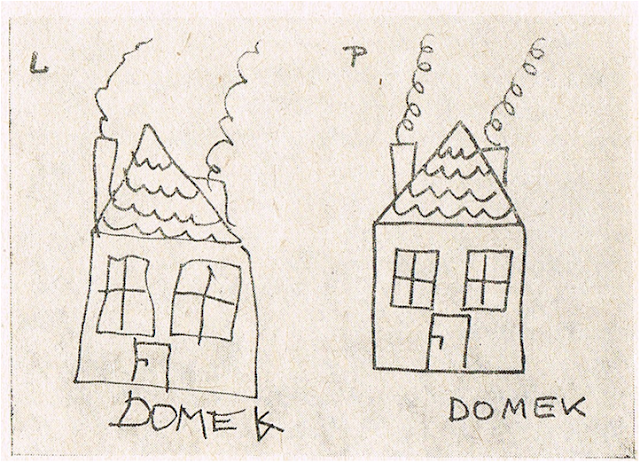 L P
DOMEK DOMEK